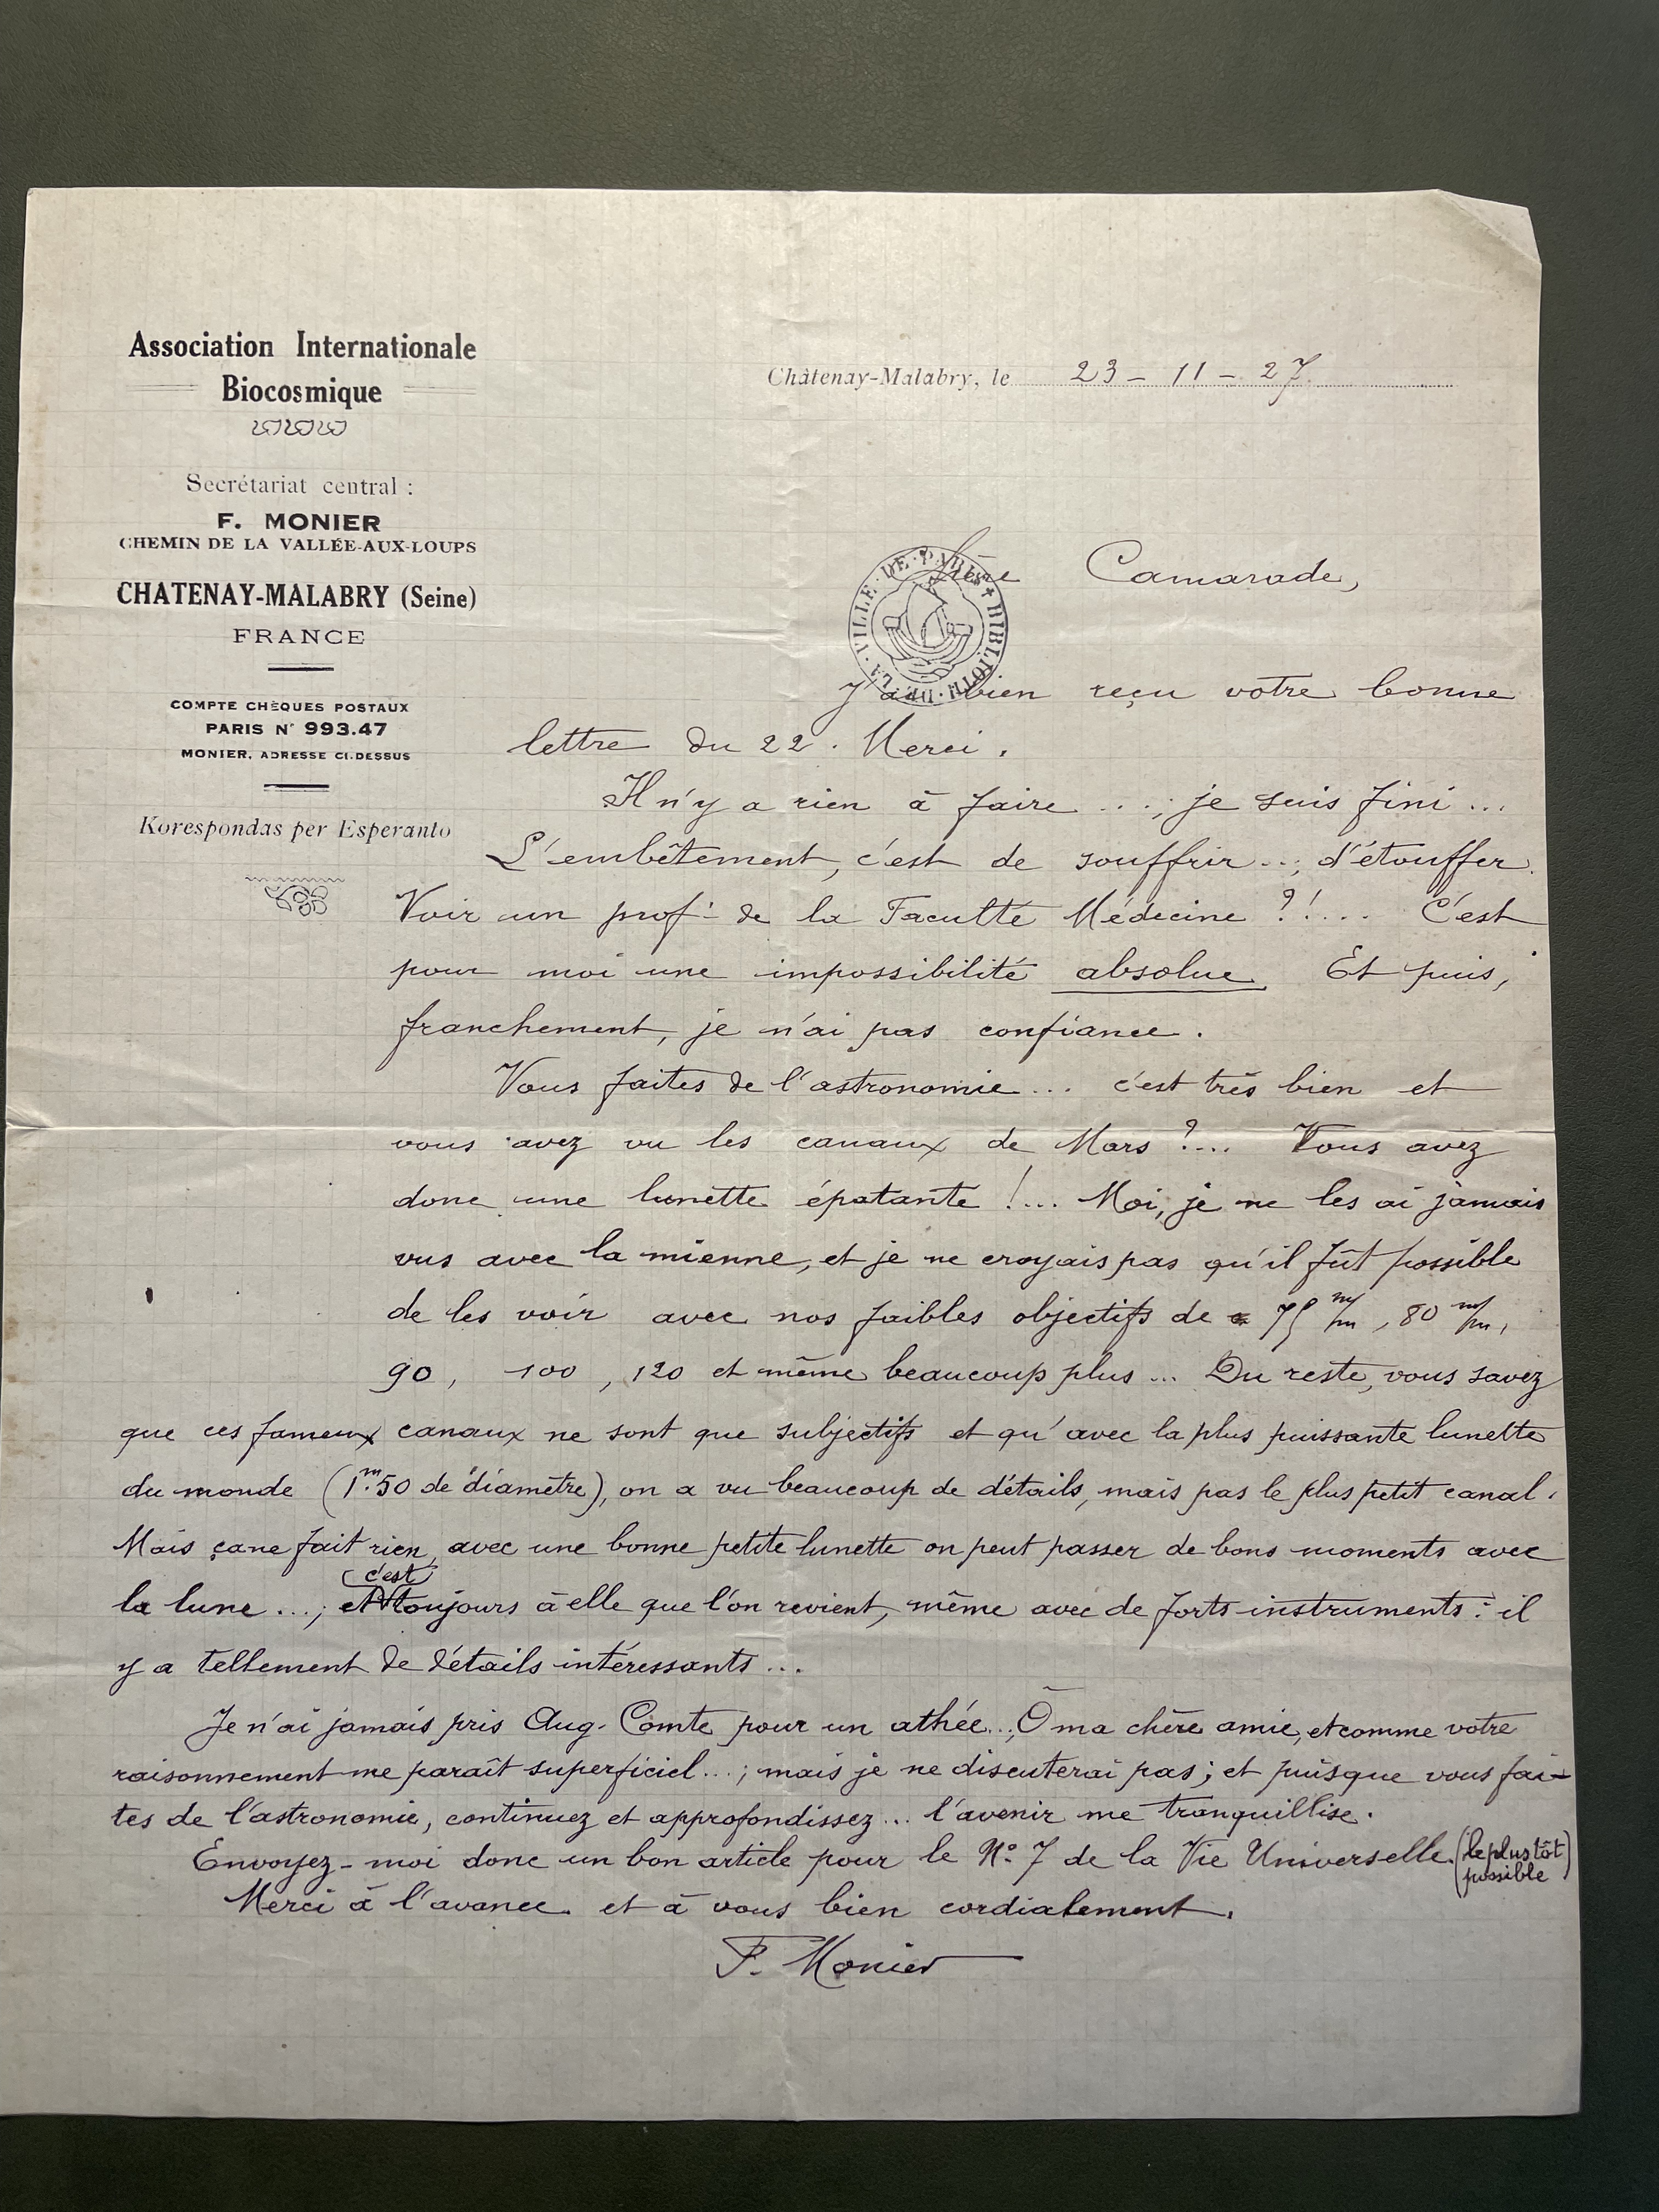 Association Internationale
Biocosmique
Secrétariat central :
F. MONIER
CHEMIN DE LA VALLÉE-AUX-LOUPS
CHATENAY-MALABRY (Seine)
FRANCE
COMPTE CHÈQUES POSTAUX
PARIS N° 993.47
MONIER, ADRESSE CI-DESSUS
Korespondas per Esperanto
Châtenay-Malabry, le 23 - 11 - 27
Chère Camarade,
BIBLIOTH · DE · LA · VILLE · DE · PARIS
J'ai bien reçu votre bonne
lettre du 22. Merci.
Il n'y a rien à faire ...; je suis fini ...
L'embêtement, c'est de souffrir...; d'étouffer.
Voir un prof. de la Faculté Médecine ?!... C'est
pour moi une impossibilité absolue. Et puis,
franchement, je n'ai pas confiance.
Vous faites de l'astronomie ... c'est très bien et
vous avez vu les canaux de Mars ?... Vous avez
donc une lunette épatante !... Moi, je ne les ai jamais
vus avec la mienne, et je ne croyais pas qu'il fût possible
de les voir avec nos faibles objectifs de 75 m/m, 80 m/m,
90, 100, 120 et même beaucoup plus ... Du reste, vous savez
que ces fameux canaux ne sont que subjectifs et qu'avec la plus puissante lunette
du monde (1m.50 de diamètre), on a vu beaucoup de détails, mais pas le plus petit canal.
Mais ça ne fait rien, avec une bonne petite lunette on peut passer de bons moments avec
la lune ...; c'est toujours à elle que l'on revient, même avec de forts instruments : il
y a tellement de détails intéressants ...
Je n'ai jamais pris Aug. Comte pour un athée...; Ô ma chère amie, et comme votre
raisonnement me paraît superficiel...; mais je ne discuterai pas; et puisque vous fai-
tes de l'astronomie, continuez et approfondissez... l'avenir me tranquillise.
Envoyez-moi donc un bon article pour le N° 7 de la Vie Universelle. (le plus tôt
possible)
Merci à l'avance et à vous bien cordialement.
F. Monier